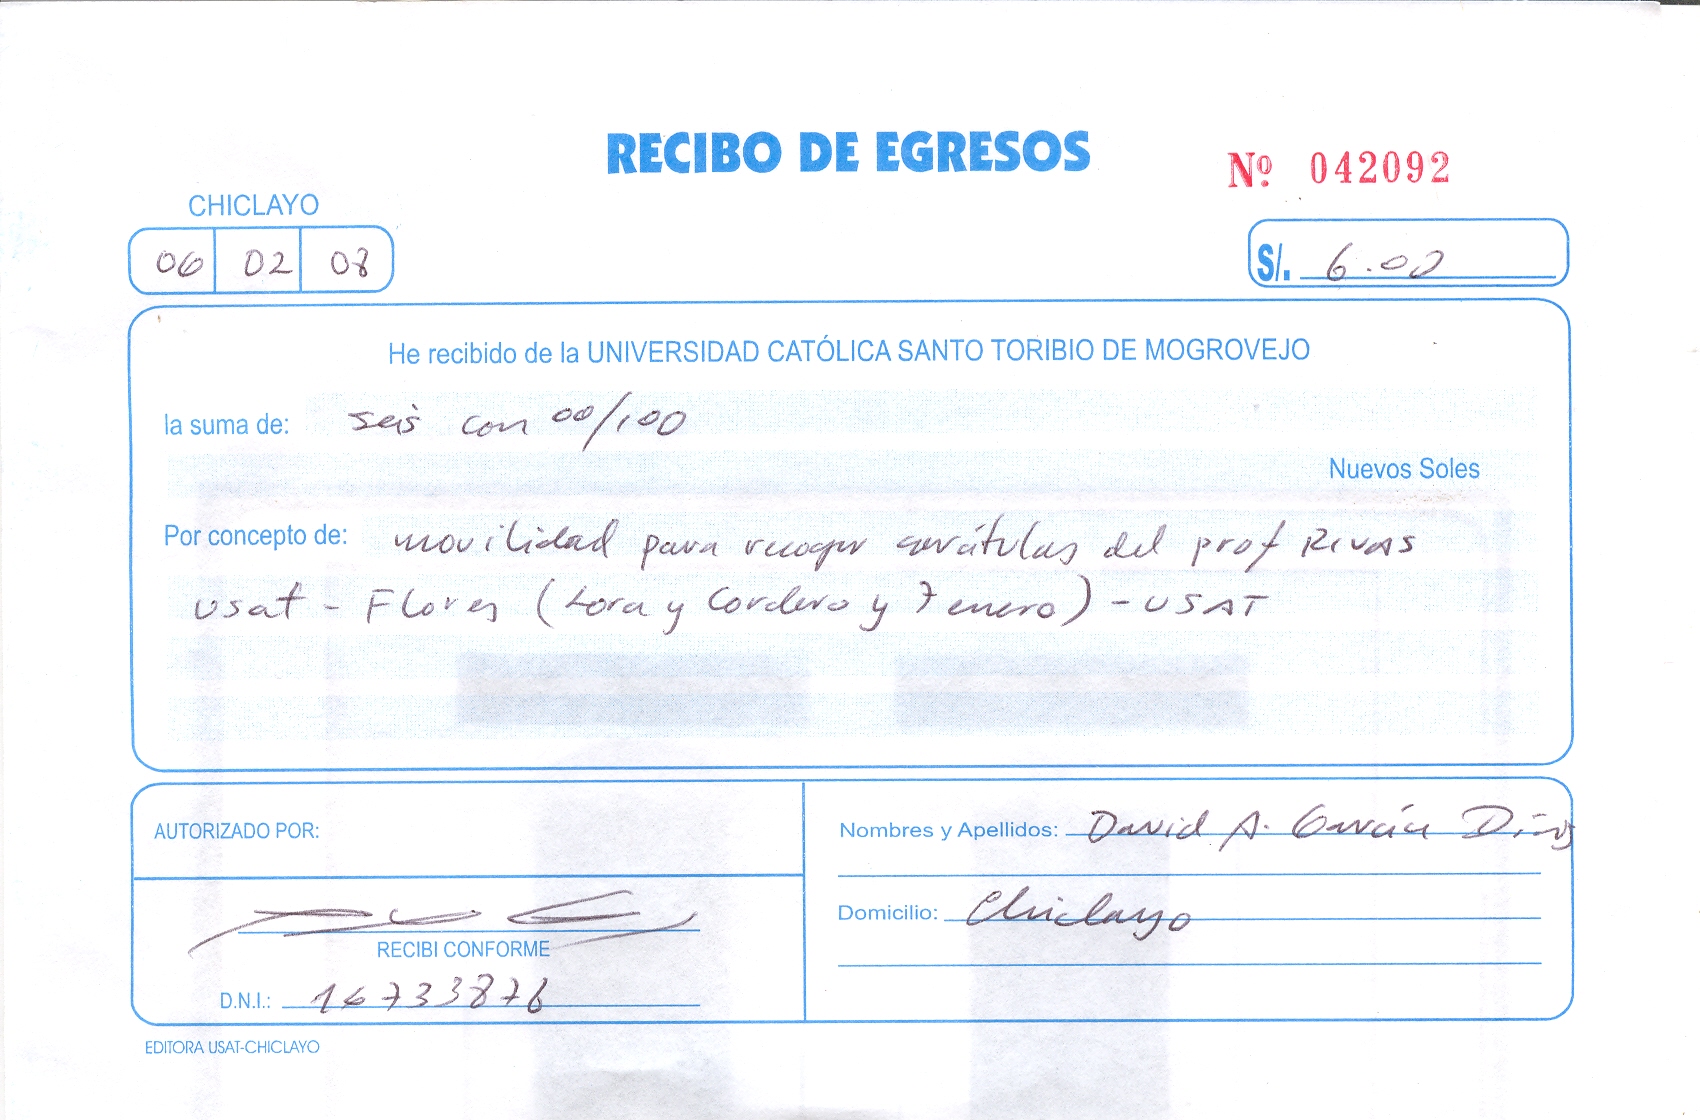 RECIBO DE EGRESOS
Nº 042092
CHICLAYO
06 02 08
S/. 6.00
He recibido de la UNIVERSIDAD CATÓLICA SANTO TORIBIO DE MOGROVEJO
la suma de: seis con 00/100
Nuevos Soles
Por concepto de: movilidad para recoger carátulas del prof Rivas
Usat - Flores (Lora y Cordero y 7 enero) - USAT
AUTORIZADO POR:
Nombres y Apellidos: David A. García Díaz
Domicilio: Chiclayo
RECIBI CONFORME
D.N.I.: 16733876
EDITORA USAT-CHICLAYO